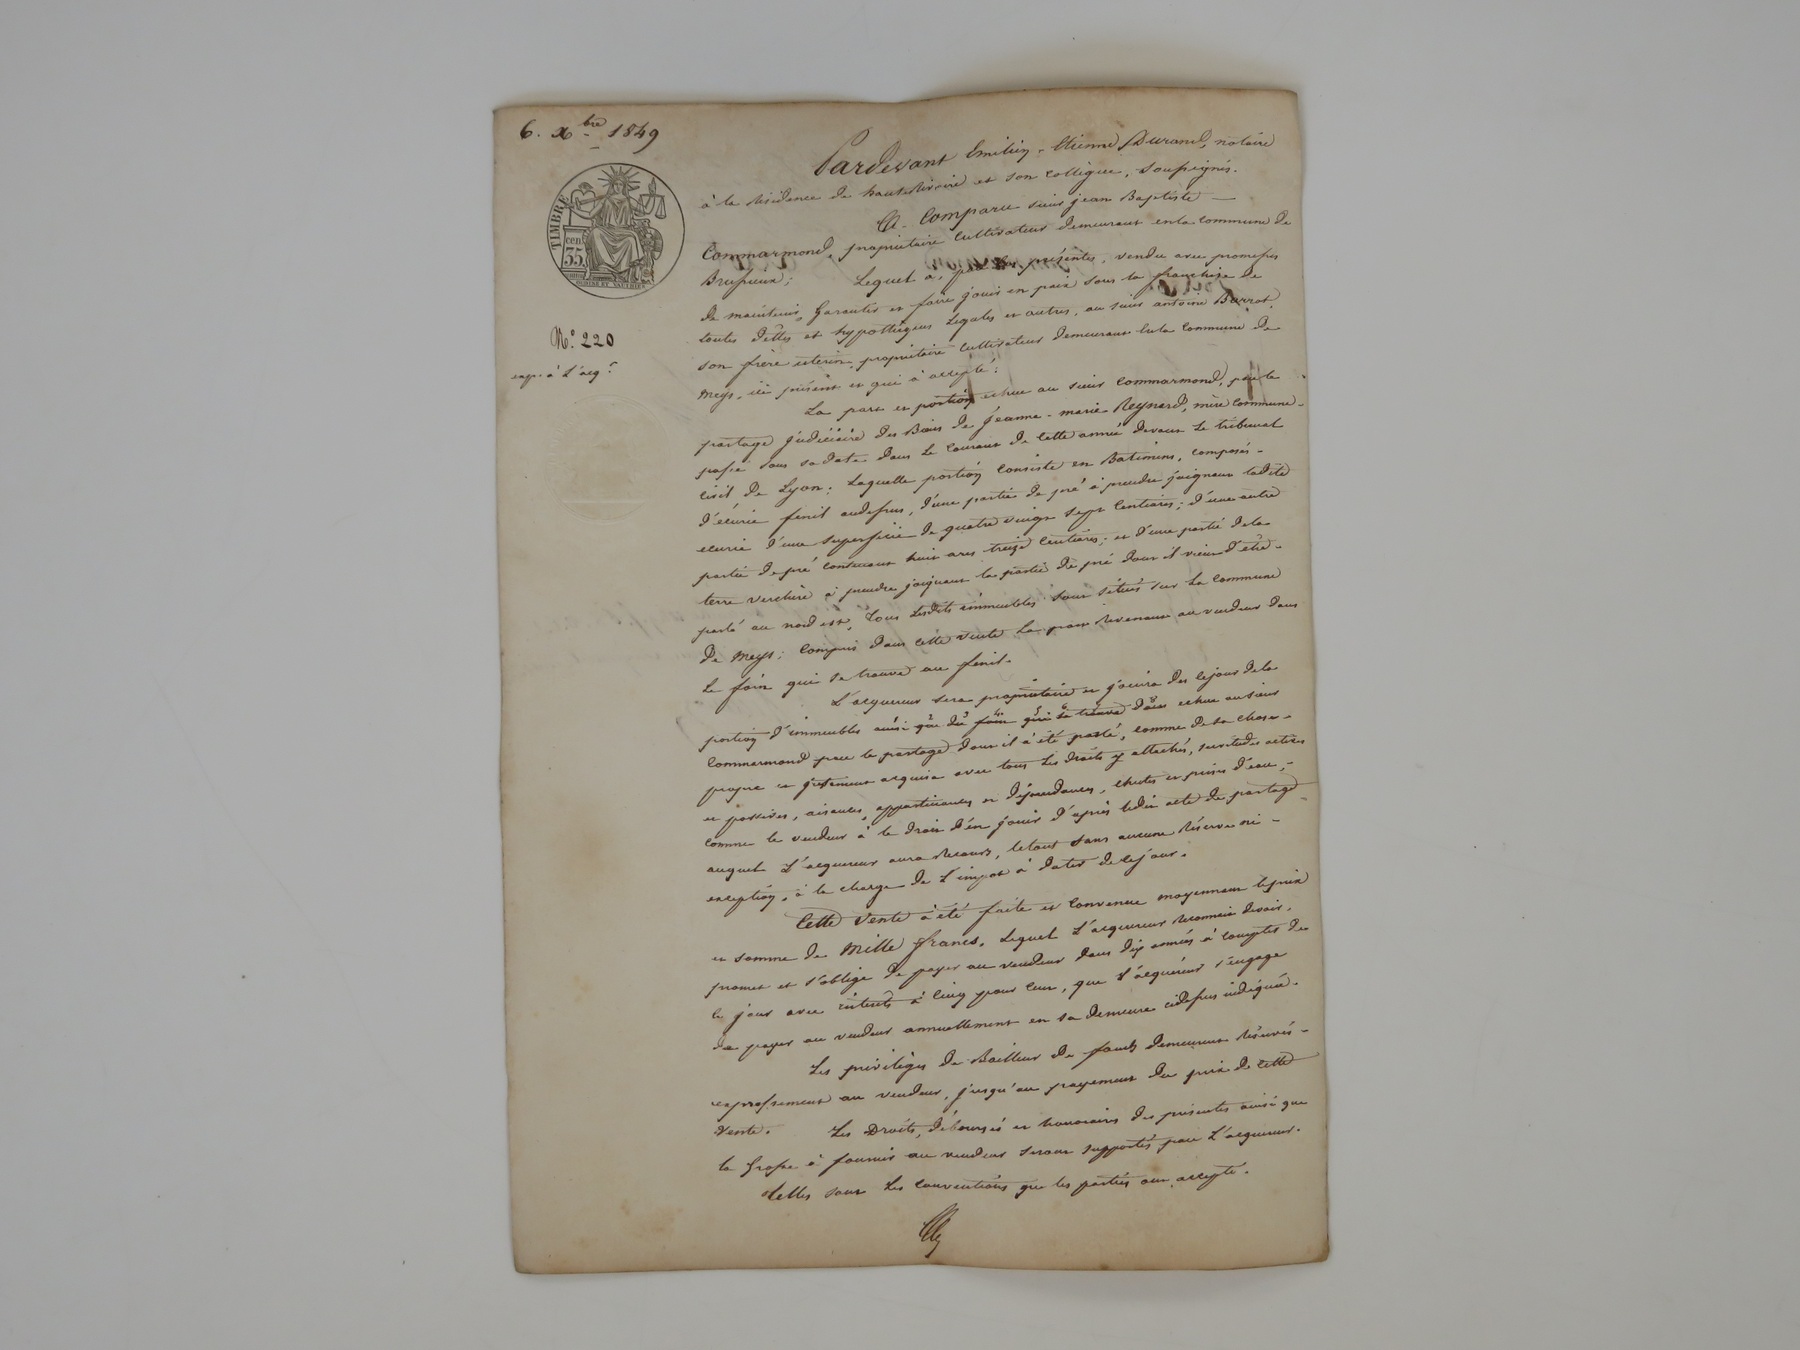 6. Xbre 1849
TIMBRE
CEN
35
N.º 220
exp. à L'acq.r
Pardevant Emilien-Etienne Durand, notaire
à la Résidence de hauteRivoire et son collègue, soussignés.
A Comparu sieur jean Baptiste
Commarmond, propriétaire cultivateur demeurant en la commune de
Brussieux; Lequel a, par les présentes, vendu avec promesses
de maintenir, garantir et faire jouir en paix sous la franchise de
toutes dettes et hypothèques légales et autres, au sieur antoine Barrot,
son frère utérin, propriétaire cultivateur demeurant en la commune de
Meys, ici présent et qui à accepté:
La part et portion echue au sieur Commarmond, par le
partage judiciaire des Biens de jeanne-marie Reynard, mère commune
passé sous sa date dans le courant de cette année devant Le tribunal
civil de Lyon; Laquelle portion consiste en Batimens, composés
d'écurie fenil audessus, d'une partie de pré à prendre joignant ladite
écurie d'une superficie de quatre vingt sept centiares; d'une autre
partie de pré contenant huit ares treize centiares; et d'une partie de la
terre verchère à prendre joignant la partie de pré dont il vient d'être
parlé au nord est, Tous lesdits immeubles sont situés sur La commune
de Meys; compris dans cette vente La part Revenant au vendeur dans
Le foin qui se trouve au fenil.
L'acquereur sera propriétaire et jouira dès cejour de la
portion d'immeubles ainsi que du foin qui se trouve dans echue au sieur
Commarmond par le partage dont il à été parlé, comme de sa chose
propre et justement acquise avec tous Les droits y attachés, servitudes actives
et passives, aisances, appartenances et dépendances, chutes et prises d'eau,
comme le vendeur à le droit d'en jouir d'après ledit acte de partage
auquel L'acquereur aura Recours, letout sans aucune Réserve ni
exception, à la charge de L'impot à dater de cejour.
Cette vente à été faite et convenue moyennant le prix
et somme de Mille francs, Lequel L'acquereur Reconnait devoir,
promet et s'oblige de payer au vendeur dans dix années à comptes de
ce jour avec intérêts à cinq pour cent, que L'acquéreur s'engage
de payer au vendeur annuellement en sa demeure cidessus indiquée.
Les privilèges de Bailleur de fonds demeurent Réservés
expressément au vendeur, jusqu'au payement du prix de cette
vente. Les Droits, déboursés et honoraires des présentes ainsi que
la Grosse à fournir au vendeur seront supportés par L'acquereur.
Telles sont Les conventions que les parties ont accepté.